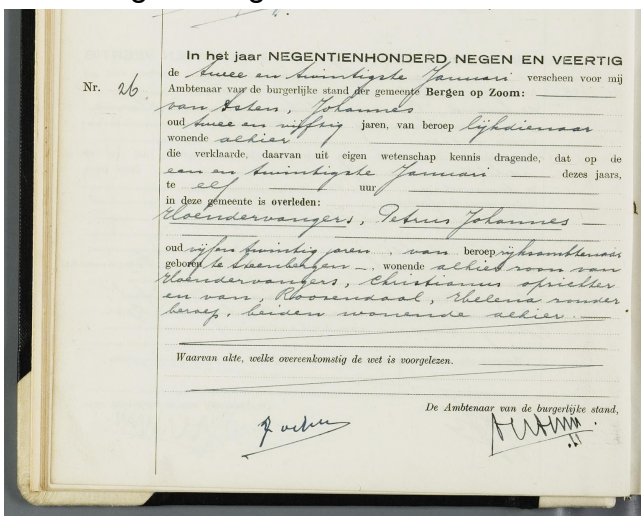 In het jaar NEGENTIENHONDERD NEGEN EN VEERTIG
de twee en twintigste Januari verscheen voor mij
Nr. 26 Ambtenaar van de burgerlijke stand der gemeente Bergen op Zoom:
van Osten, Johannes
oud twee en vijftig jaren, van beroep lijkdienaar
wonende alhier
die verklaarde, daarvan uit eigen wetenschap kennis dragende, dat op de
een en twintigste Januari dezes jaars,
te elf uur
in deze gemeente is overleden:
Hoendervangers, Petrus Johannes
oud vijfentwintig jaren, van beroep rijksambtenaar
geboren te Steenbergen, wonende alhier zoon van
Hoendervangers, Christianus oprichter
en van, Roosendaal, Helena zonder
beroep, beiden wonende alhier.
Waarvan akte, welke overeenkomstig de wet is voorgelezen.
De Ambtenaar van de burgerlijke stand,